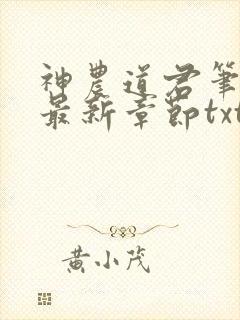 神農道君筆
最新章節txt
黄小茂